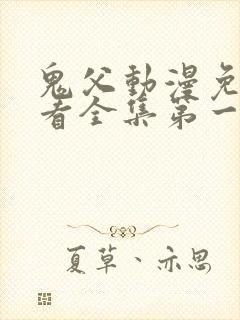 鬼父動漫免
看全集第一
夏草、亦思